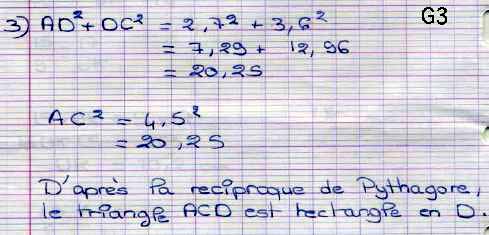 G3
3) AD² + DC² = 2,7² + 3,6²
= 7,29 + 12,96
= 20,25
AC² = 4,5²
= 20,25
D'après la reciproque de Pythagore,
le triangle ACD est rectangle en D.